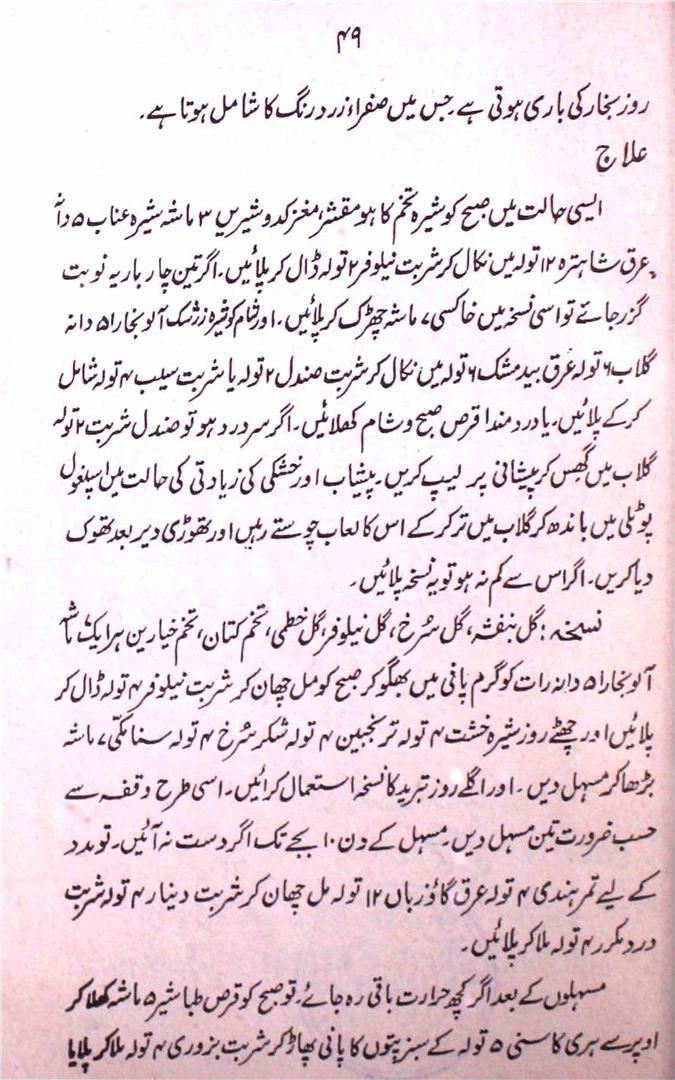 ۴۹
روز بخار کی باری ہوتی ہے۔ جس میں صفراء زرد رنگ کا شامل ہوتا ہے۔
علاج
ایسی حالت میں صبح کو شیرہ تخم کاہو مقشر، مغز کدو شیریں ۳ ماشہ شیرہ عناب ۵ دانہ
عرق شاہترہ ۱۲ تولہ میں نکال کر شربت نیلوفر ۲ تولہ ڈال کر پلائیں۔ اگر تین چار بار یہ نوبت
گزر جائے تو اسی نسخہ میں خاکسی ۷ ماشہ چھڑک کر پلائیں۔ اور شام کو شیرہ زرشک آلو بخارا ۵ دانہ
گلاب ۶ تولہ عرق بید مشک ۶ تولہ میں نکال کر شربت صندل ۲ تولہ یا شربت سیب ۴ تولہ شامل
کر کے پلائیں۔ یا درد مندا قرص صبح و شام کھلائیں۔ اگر سر درد ہو تو صندل شربت ۲ تولہ
گلاب میں گھس کر پیشانی پر لیپ کریں۔ پیشاب اور خشکی کی زیادتی کی حالت میں اسپغول
پوٹلی میں باندھ کر گلاب میں تر کر کے اس کا لعاب چوستے رہیں اور تھوڑی دیر بعد تھوک
دیا کریں۔ اگر اس سے کم نہ ہو تو یہ نسخہ پلائیں۔
نسخہ: گل بنفشہ، گل سُرخ، گل نیلوفر، گل خطمی، تخم کتان، تخم خیارین ہر ایک ماشہ
آلو بخارا ۵ دانہ رات کو گرم پانی میں بھگو کر صبح کو مل چھان کر شربت نیلوفر ۴ تولہ ڈال کر
پلائیں اور چھٹے روز شیرہ خشت ۴ تولہ ترنجبین ۴ تولہ شکر سُرخ ۴ تولہ سنا مکّی ۷ ماشہ
بڑھا کر مسہل دیں۔ اور اگلے روز تبرید کا نسخہ استعمال کرائیں۔ اسی طرح وقفہ سے
حسب ضرورت تین مسہل دیں۔ مسہل کے دن ۱۰ بجے تک اگر دست نہ آئیں۔ تو مدد
کے لیے تمر ہندی ۴ تولہ عرق گاؤزباں ۱۲ تولہ مل چھان کر شربت دینار ۴ تولہ شربت
درد مکرر ۴ تولہ ملا کر پلائیں۔
مسہلوں کے بعد اگر کچھ حرارت باقی رہ جائے۔ تو صبح کو قرص طباشیر ۵ ماشہ کھلا کر
اوپر سے ہری کاسنی ۵ تولہ کے سبز پتوں کا پانی پھاڑ کر شربت بزوری ۴ تولہ ملا کر پلایا